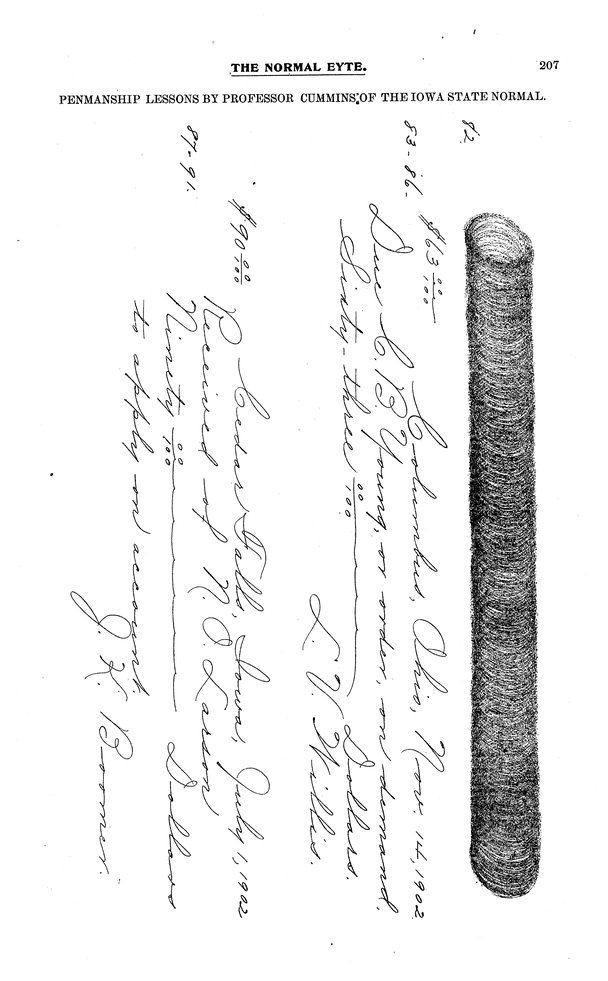 THE NORMAL EYTE.
207
PENMANSHIP LESSONS BY PROFESSOR CUMMINS, OF THE IOWA STATE NORMAL.
82.
83-86.
$63 00/100 Columbus, Ohio, Nov. 14, 1902
Due C. B. Young, or order, on demand,
Sixty-three 00/100 Dollars.
L. V. Willis.
87-91.
$90 00/100 Cedar Falls, Iowa, July 1, 1902
Received of N. O. Larson
Ninety 00/100 Dollars
to apply on account.
J. K. Boomer.